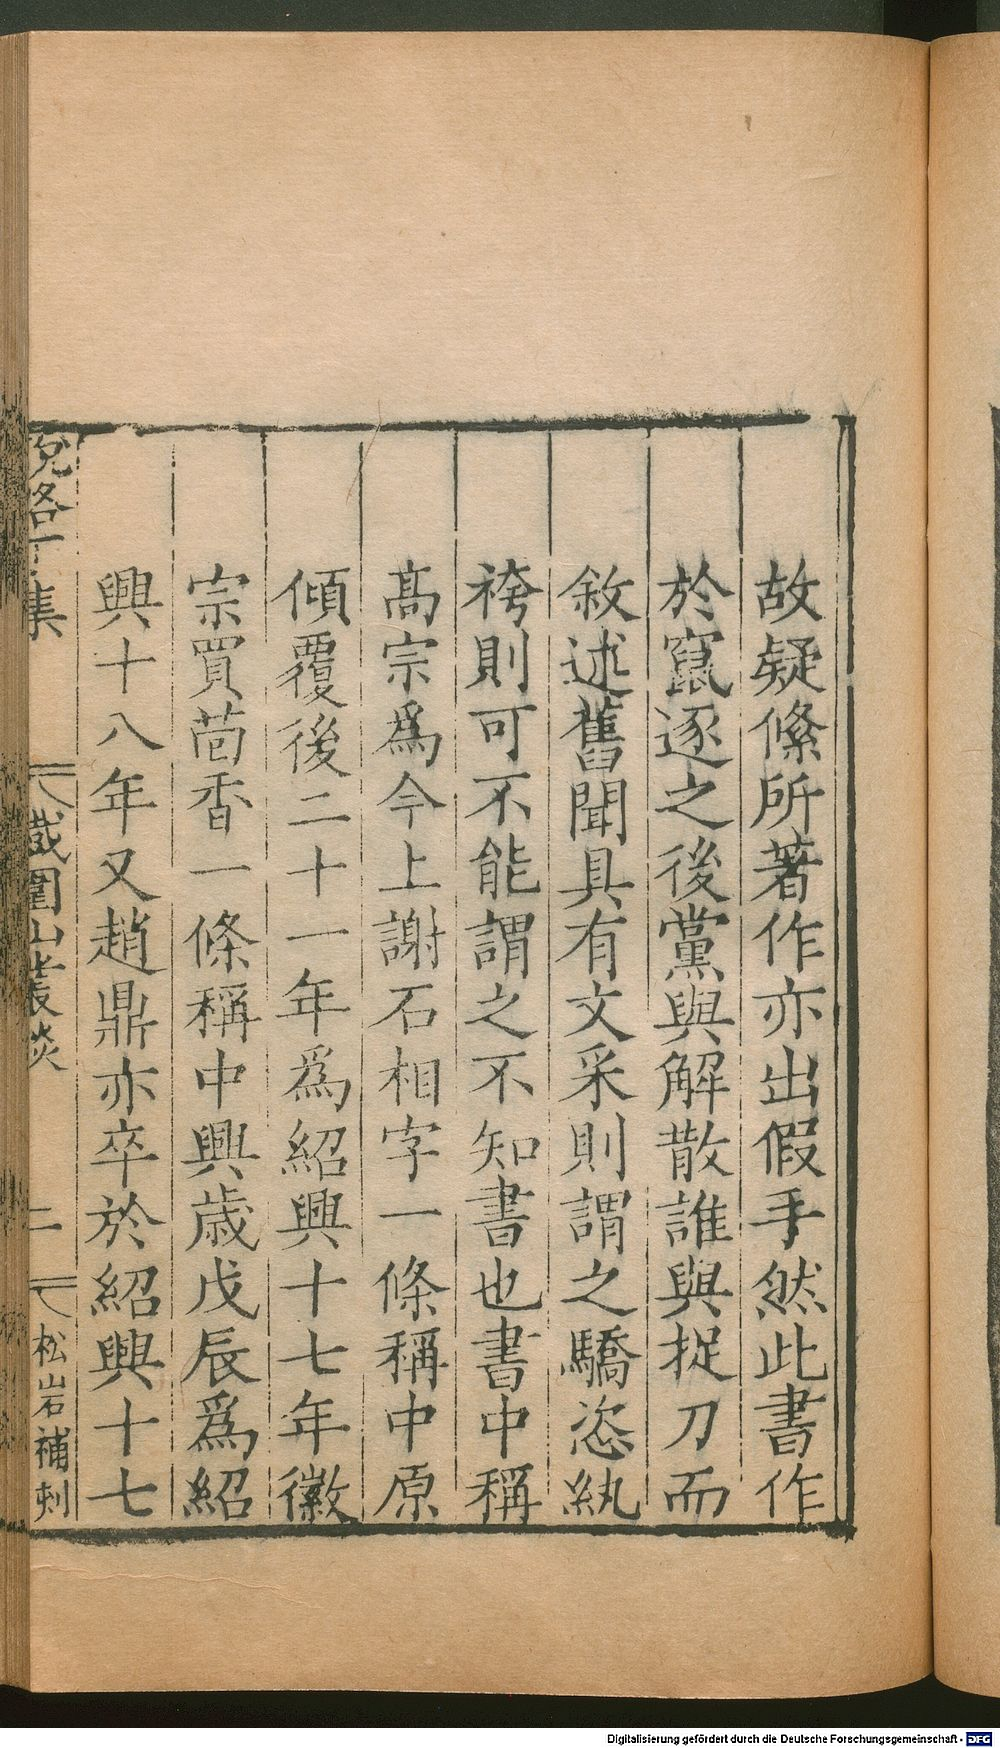 故疑絛所著作亦出假手然此書作
於竄逐之後黨與解散誰與捉刀而
敘述舊聞具有文采則謂之驕恣紈
袴則可不能謂之不知書也書中稱
高宗為今上謝石相字一條稱中原
傾覆後二十一年為紹興十七年徽
宗買茴香一條稱中興歲戊辰為紹
興十八年又趙鼎亦卒於紹興十七
集 圍山叢談 二 松岩補刺
Digitalisierung gefördert durch die Deutsche Forschungsgemeinschaft - DFG